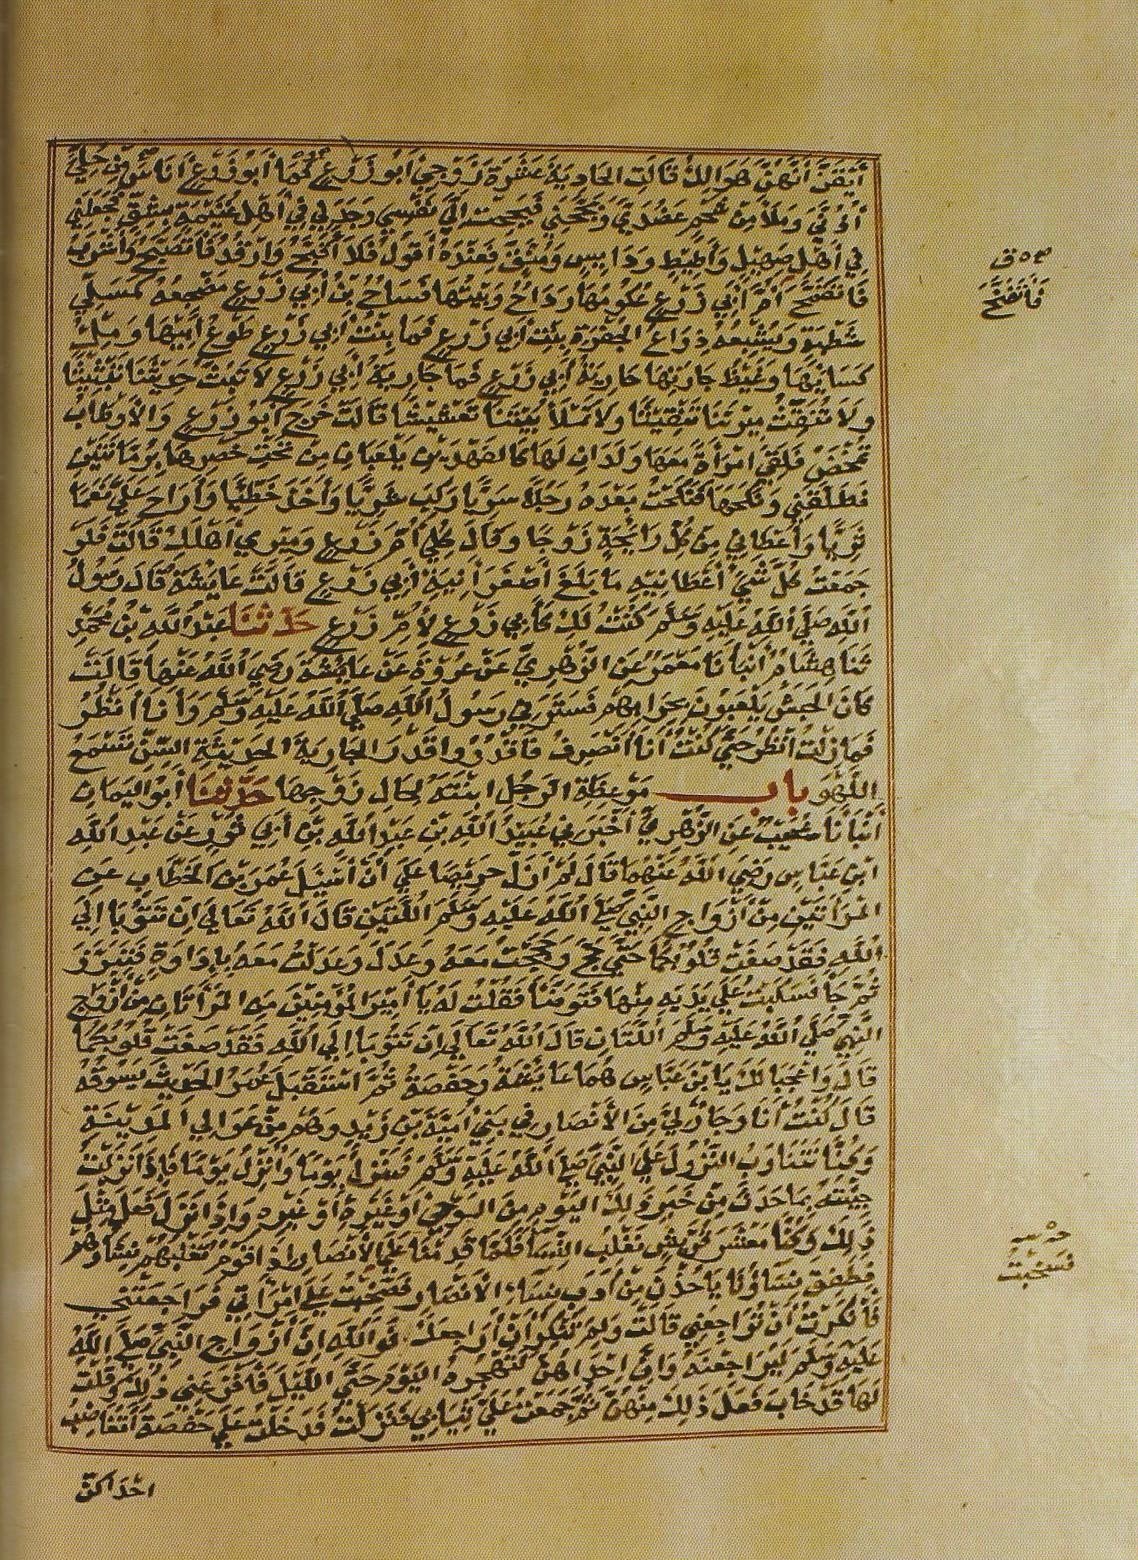 أيقن أنهن هوالك قالت الحادية عشرة زوجي أبو زرع فما أبو زرع أناس من حلي
أذني وملأ من شحم عضدي وبجحني فبجحت إلي نفسي وجدني في أهل غنيمة بشق فجعلني
في أهل صهيل وأطيط ودايس ومنق فعنده أقول فلا أقبح وأرقد فأتصبح وأشرب
فأتقنح أم أبي زرع عكومها رداح وبيتها فساح بن أبي زرع مضجعه كمسل
شطبة ويشبعه ذراع الجفرة بنت أبي زرع فما بنت أبي زرع طوع أبيها وملئ
كسائها وغيظ جارتها جارية أبي زرع فما جارية أبي زرع لا تبث حديثنا تبثيثا
ولا تنقث ميرتنا تنقيثا ولا تملأ بيتنا تعشيشا قالت خرج أبو زرع والأوطاب
تمخض فلقي امرأة معها ولدان لها كالفهدين يلعبان من تحت خصرها برمانتين
فطلقني ونكحها فنكحت بعده رجلا سريا ركب شريا وأخذ خطيا وأراح علي نعما
ثريا وأعطاني من كل رائحة زوجا وقال كلي أم زرع وميري أهلك قالت فلو
جمعت كل شيئ أعطانيه ما بلغ أصغر انية أبي زرع قالت عايشة قال رسول
الله صلي الله عليه وسلم كنت لك كأبي زرع لأم زرع حدثنا عبد الله بن محمد
ثنا هشام أنبأنا معمر عن الزهري عن عروة عن عايشة رضي الله عنها قالت
كان الحبش يلعبون بحرابهم فسترني رسول الله صلي الله عليه وسلم وأنا أنظر
فما زلت أنظر حتي كنت أنا أنصرف فاقدروا قدر الجارية الحديثة السن تسمع
اللهو باب موعظة الرجل ابنته لحال زوجها حدثنا أبو اليمان
أنبأنا شعيب عن الزهري أخبرني عبيد الله بن عبد الله بن أبي ثور عن عبد الله
ابن عباس رضي الله عنهما قال لم أزل حريصا علي أن أسئل عمر بن الخطاب عن
المرأتين من أزواج النبي صلي الله عليه وسلم اللتين قال الله تعالي إن تتوبا إلي
الله فقد صغت قلوبكما حتي حج وحججت معه وعدل وعدلت معه بإداوة فتبرز
ثم جا فسكبت علي يديه منها فتوضأ فقلت له يا أمير المؤمنين من المرأتان من أزواج
النبي صلي الله عليه وسلم اللتان قال الله تعالي إن تتوبا إلي الله فقد صغت قلوبكما
قال واعجبا لك يا بن عباس هما عايشة وحفصة ثم استقبل عمر الحديث يسوقه
قال كنت أنا وجار لي من الأنصار في بني أمية بن زيد وهم من عوالي المدينة
وكنا نتناوب النزول علي النبي صلي الله عليه وسلم فينزل يوما وأنزل يوما فإذا نزلت
جيته بما حدث من خبر ذلك اليوم من الوحي أو غيره أو غيره وإذا نزل فعل مثل
ذلك وكنا معشر قريش نغلب النسا فلما قدمنا علي الأنصار إذا قوم تغلبهم نساؤهم
فطفق نساؤنا يأخذن من أدب نساء الأنصار فصخبت علي امرأتي فراجعتني
فأنكرت أن تراجعني قالت ولم تنكر أن أراجعك فوالله ان أزواج النبي صلي الله
عليه وسلم ليراجعنه وان احداهن لتهجره اليوم حتي الليل فافزعني ذلك وقلت
لها قد خاب من فعل ذلك منهن ثم جمعت علي ثيابي فنزلت فدخلت علي حفصة أتغاضب
فأتقنح
فسخبت
احداكن